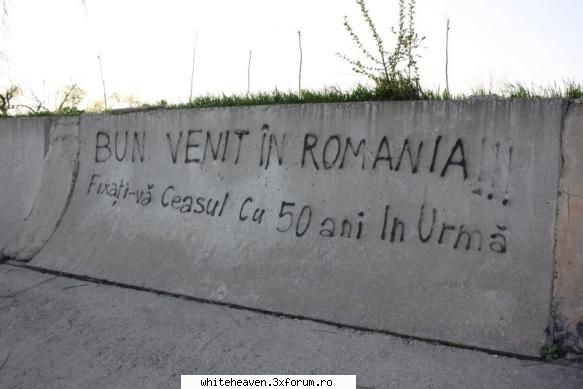 BUN VENIT ÎN ROMANIA!!!
Fixați-vă Ceasul Cu 50 ani In Urmă
whiteheaven.3xforum.ro